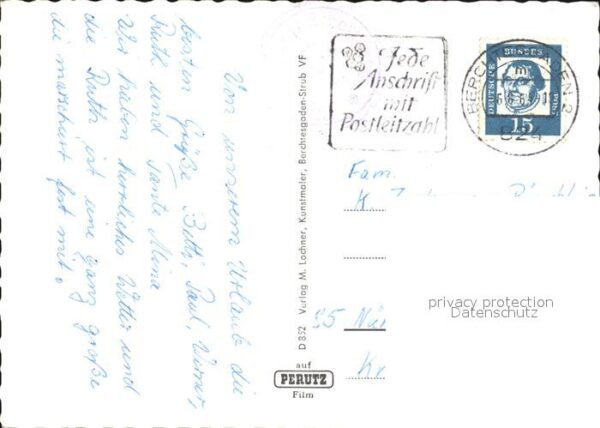 Von unserem Urlaub die
besten Grüße Betti, Paul, Werner,
Ruth und Tante Mina
Wir haben herrliches Wetter und
die Ruth ist eine ganz große
die marschiert fest mit.
D 852 Verlag M. Lochner, Kunstmaler, Berchtesgaden-Strub VF
auf
PERUTZ
Film
Jede
Anschrift
mit
Postleitzahl
DEUTSCHE
BUNDES
POST
15
824
Fam.
K.
privacy protection
Datenschutz
85 Nür
Kr